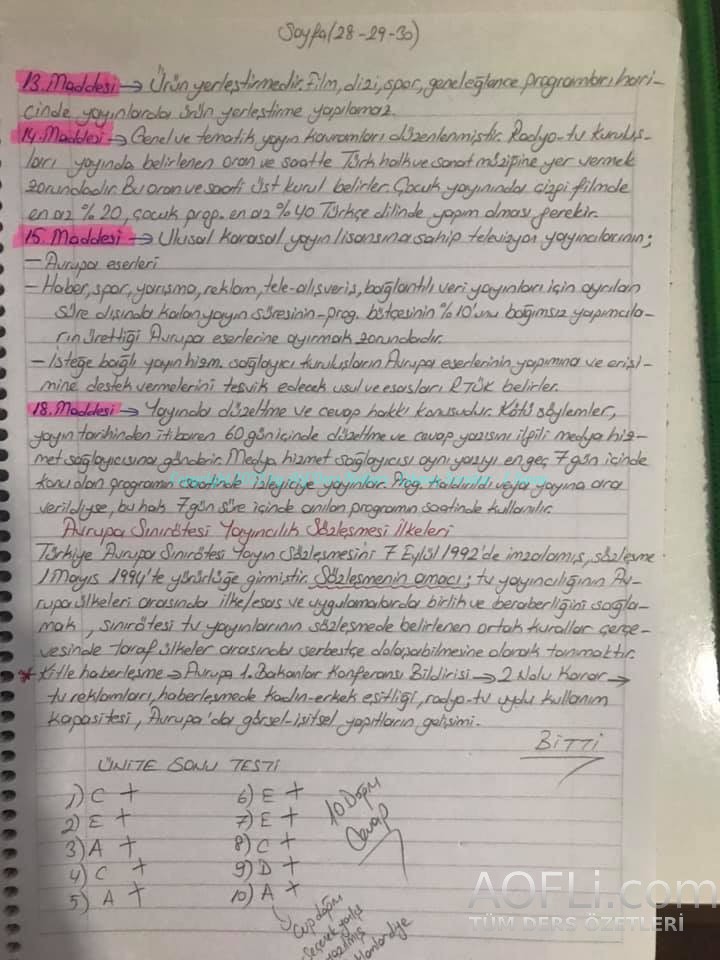 Sayfa (28-29-30)
13. Maddesi → Ürün yerleştirmedir. Film, dizi, spor, genel eğlence programları hari-
cinde yayınlarda ürün yerleştirme yapılamaz.
14. Maddesi → Genel ve tematik yayın kavramları düzenlenmiştir. Radyo-tv kuruluş-
ları yayında belirlenen oran ve saatte Türk halk ve sanat müziğine yer vermek
zorundadır. Bu oran ve saati Üst kurul belirler. Çocuk yayınında çizgi filmde
en az %20, çocuk prog. en az %40 Türkçe dilinde yapım olması gerekir.
15. Maddesi → Ulusal karasal yayın lisansına sahip televizyon yayıncılarının;
- Avrupa eserleri
- Haber, spor, yarışma, reklam, tele-alışveriş, bağlantılı veri yayınları için ayrılan
süre dışında kalan yayın süresinin-prog. bütçesinin %10'unu bağımsız yapımcıla-
rın ürettiği Avrupa eserlerine ayırmak zorundadır.
- İsteğe bağlı yayın hizm. sağlayıcı kuruluşların Avrupa eserlerinin yapımına ve erişi-
mine destek vermelerini teşvik edecek usul ve esasları RTÜK belirler.
18. Maddesi → Yayında düzeltme ve cevap hakkı konusudur. Kötü söylemler,
yayın tarihinden itibaren 60 gün içinde düzeltme ve cevap yazısını ilgili medya hiz-
met sağlayıcısına gönderir. Medya hizmet sağlayıcısı aynı yazıyı en geç 7 gün içinde
konu olan programın saatinde izleyiciye yayınlar. Prog. kaldırıldı veya yayına ara
verildiyse, bu hak 7 gün süre içinde anılan programın saatinde kullanılır.
Avrupa Sınırötesi Yayıncılık Sözleşmesi İlkeleri
Türkiye Avrupa Sınırötesi Yayın Sözleşmesini 7 Eylül 1992'de imzalamış, sözleşme
1 Mayıs 1994'te yürürlüğe girmiştir. Sözleşmenin amacı; tv yayıncılığının Av-
rupa ülkeleri arasında ilke/esas ve uygulamalarda birlik ve beraberliğini sağla-
mak, sınırötesi tv yayınlarının sözleşmede belirlenen ortak kurallar çerçe-
vesinde taraf ülkeler arasında serbestçe dolaşabilmesine olanak tanımaktır.
* Kitle haberleşme → Avrupa 1. Bakanlar Konferansı Bildirisi → 2 Nolu Karar →
tv reklamları, haberleşmede kadın-erkek eşitliği, radyo-tv uydu kullanım
kapasitesi, Avrupa'da görsel-işitsel yapıtların gelişimi.
BİTTİ
ÜNİTE SONU TESTİ
1) C +
2) E +
3) A +
4) C +
5) A +
6) E +
7) E +
8) C +
9) D +
10) A +
10 Doğru
Cevap
Cvp doğru
seçenek yanlış
yazılmış
AOFLi.com
TÜM DERS ÖZETLERİ